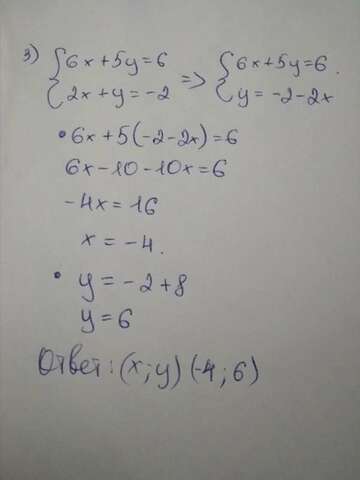 3) {6x+5y=6 => {6x+5y=6.
{2x+y=-2 {y=-2-2x
• 6x+5(-2-2x)=6
6x-10-10x=6
-4x=16
x=-4.
• y=-2+8
y=6
Ответ: (x;y) (-4;6)